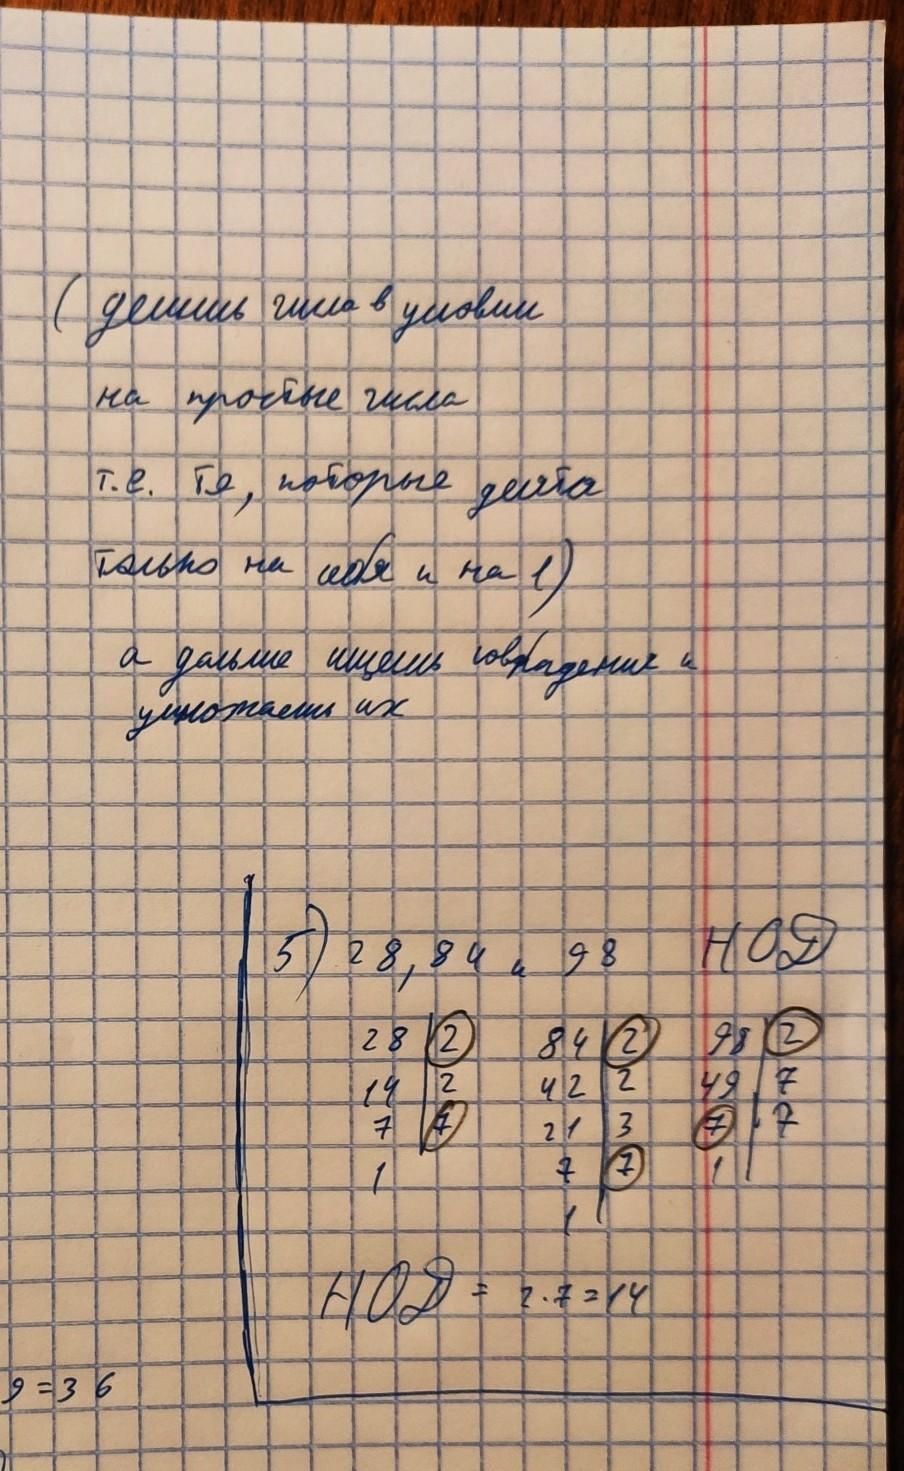 (делишь числа в условии
на простые числа
т.е. те, которые делятся
только на себя и на 1)
а дальше ищешь совпадения и
умножаешь их
5) 28, 84 и 98 НОД
28 | 2 84 | 2 98 | 2
14 | 2 42 | 2 49 | 7
7 | 7 21 | 3 7 | 7
1 7 | 7 1
1
НОД = 2·7=14
9 = 36